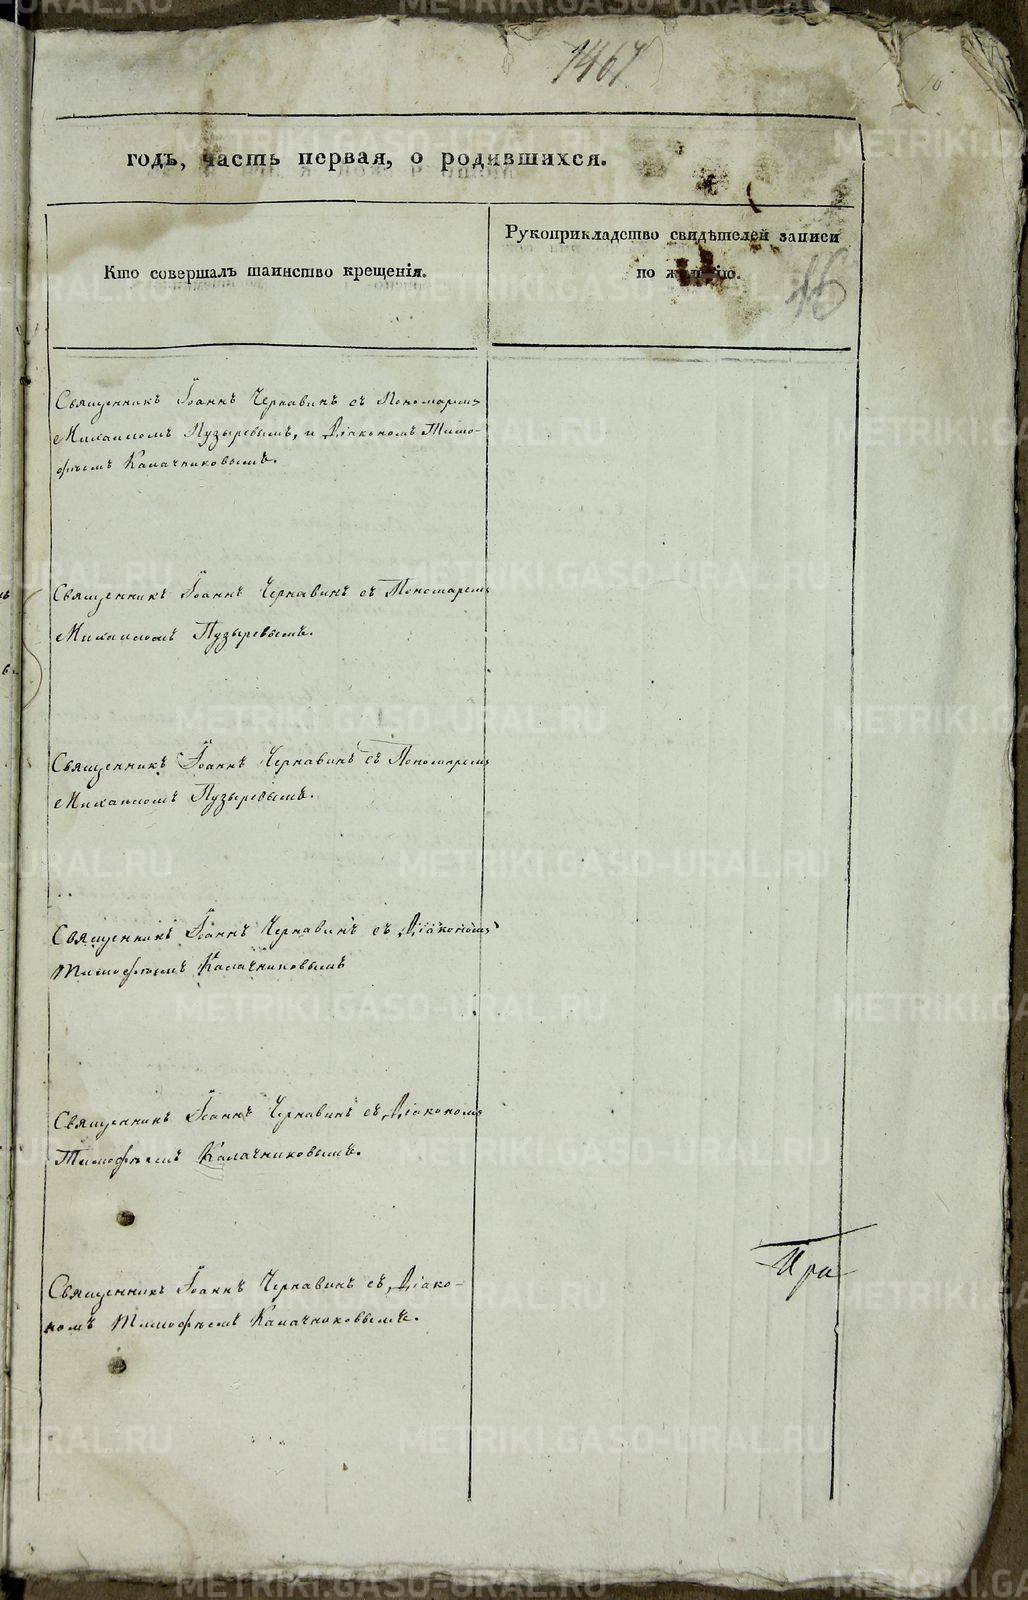 1467
годъ, часть первая, о родившихся.
Кто совершалъ таинство крещенія.
Рукоприкладство свидѣтелей записи
по желанію.
16
Священникъ Іоаннъ Чернавинъ съ Пономаремъ
Михаиломъ Пузыревымъ, и Діакономъ Тимо-
фѣемъ Калачниковымъ.
Священникъ Іоаннъ Чернавинъ съ Пономаремъ
Михаиломъ Пузыревымъ.
Священникъ Іоаннъ Чернавинъ съ Пономаремъ
Михаиломъ Пузыревымъ.
Священникъ Іоаннъ Чернавинъ съ Діакономъ
Тимофѣемъ Калачниковымъ
Священникъ Іоаннъ Чернавинъ съ Діакономъ
Тимофѣемъ Калачниковымъ.
Священникъ Іоаннъ Чернавинъ съ Діако-
номъ Тимофѣемъ Калачниковымъ.
METRIKI.GASO-URAL.RU